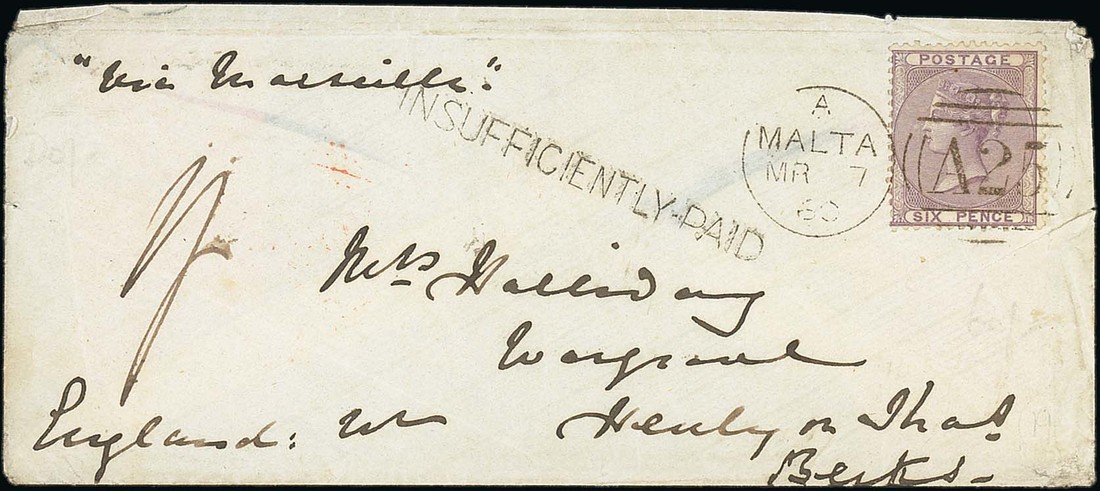 "Via Marseille"
INSUFFICIENTLY-PAID
A
MALTA
MR 7
60
POSTAGE
A25
SIX PENCE
Mrs Halliday
Wargrave
Henly on Thas
England:
Berks-